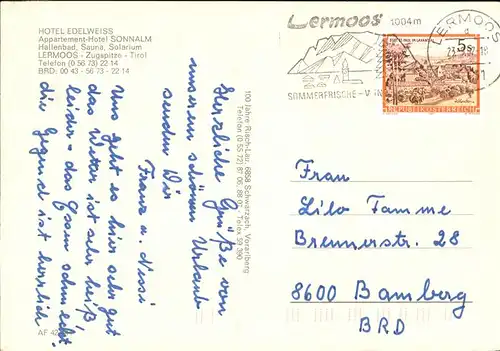 HOTEL EDELWEISS
Appartement-Hotel SONNALM
Hallenbad, Sauna, Solarium
LERMOOS - Zugspitze - Tirol
Telefon (0 56 73) 22 14
BRD: 00 43 - 56 73 - 22 14
Lermoos 1004 m
SOMMERFRISCHE - WIN
LERMOOS
5 S
REPUBLIK ÖSTERREICH
100 Jahre Risch-Lau, 6858 Schwarzach, Vorarlberg
Telefon (0 55 72) 81 06, 88 02 - Telex 59 390
AF 42
Herzliche Grüße von
unserem schönen Urlaub
senden Dir
Franz u. Nissi
Uns geht es hier sehr gut
das Wetter ist sehr heiß!
leider - das Essen schmeckt
die Gegend ist herrlich
Frau
Lilo Tamme
Brennerstr. 28
8600 Bamberg
BRD